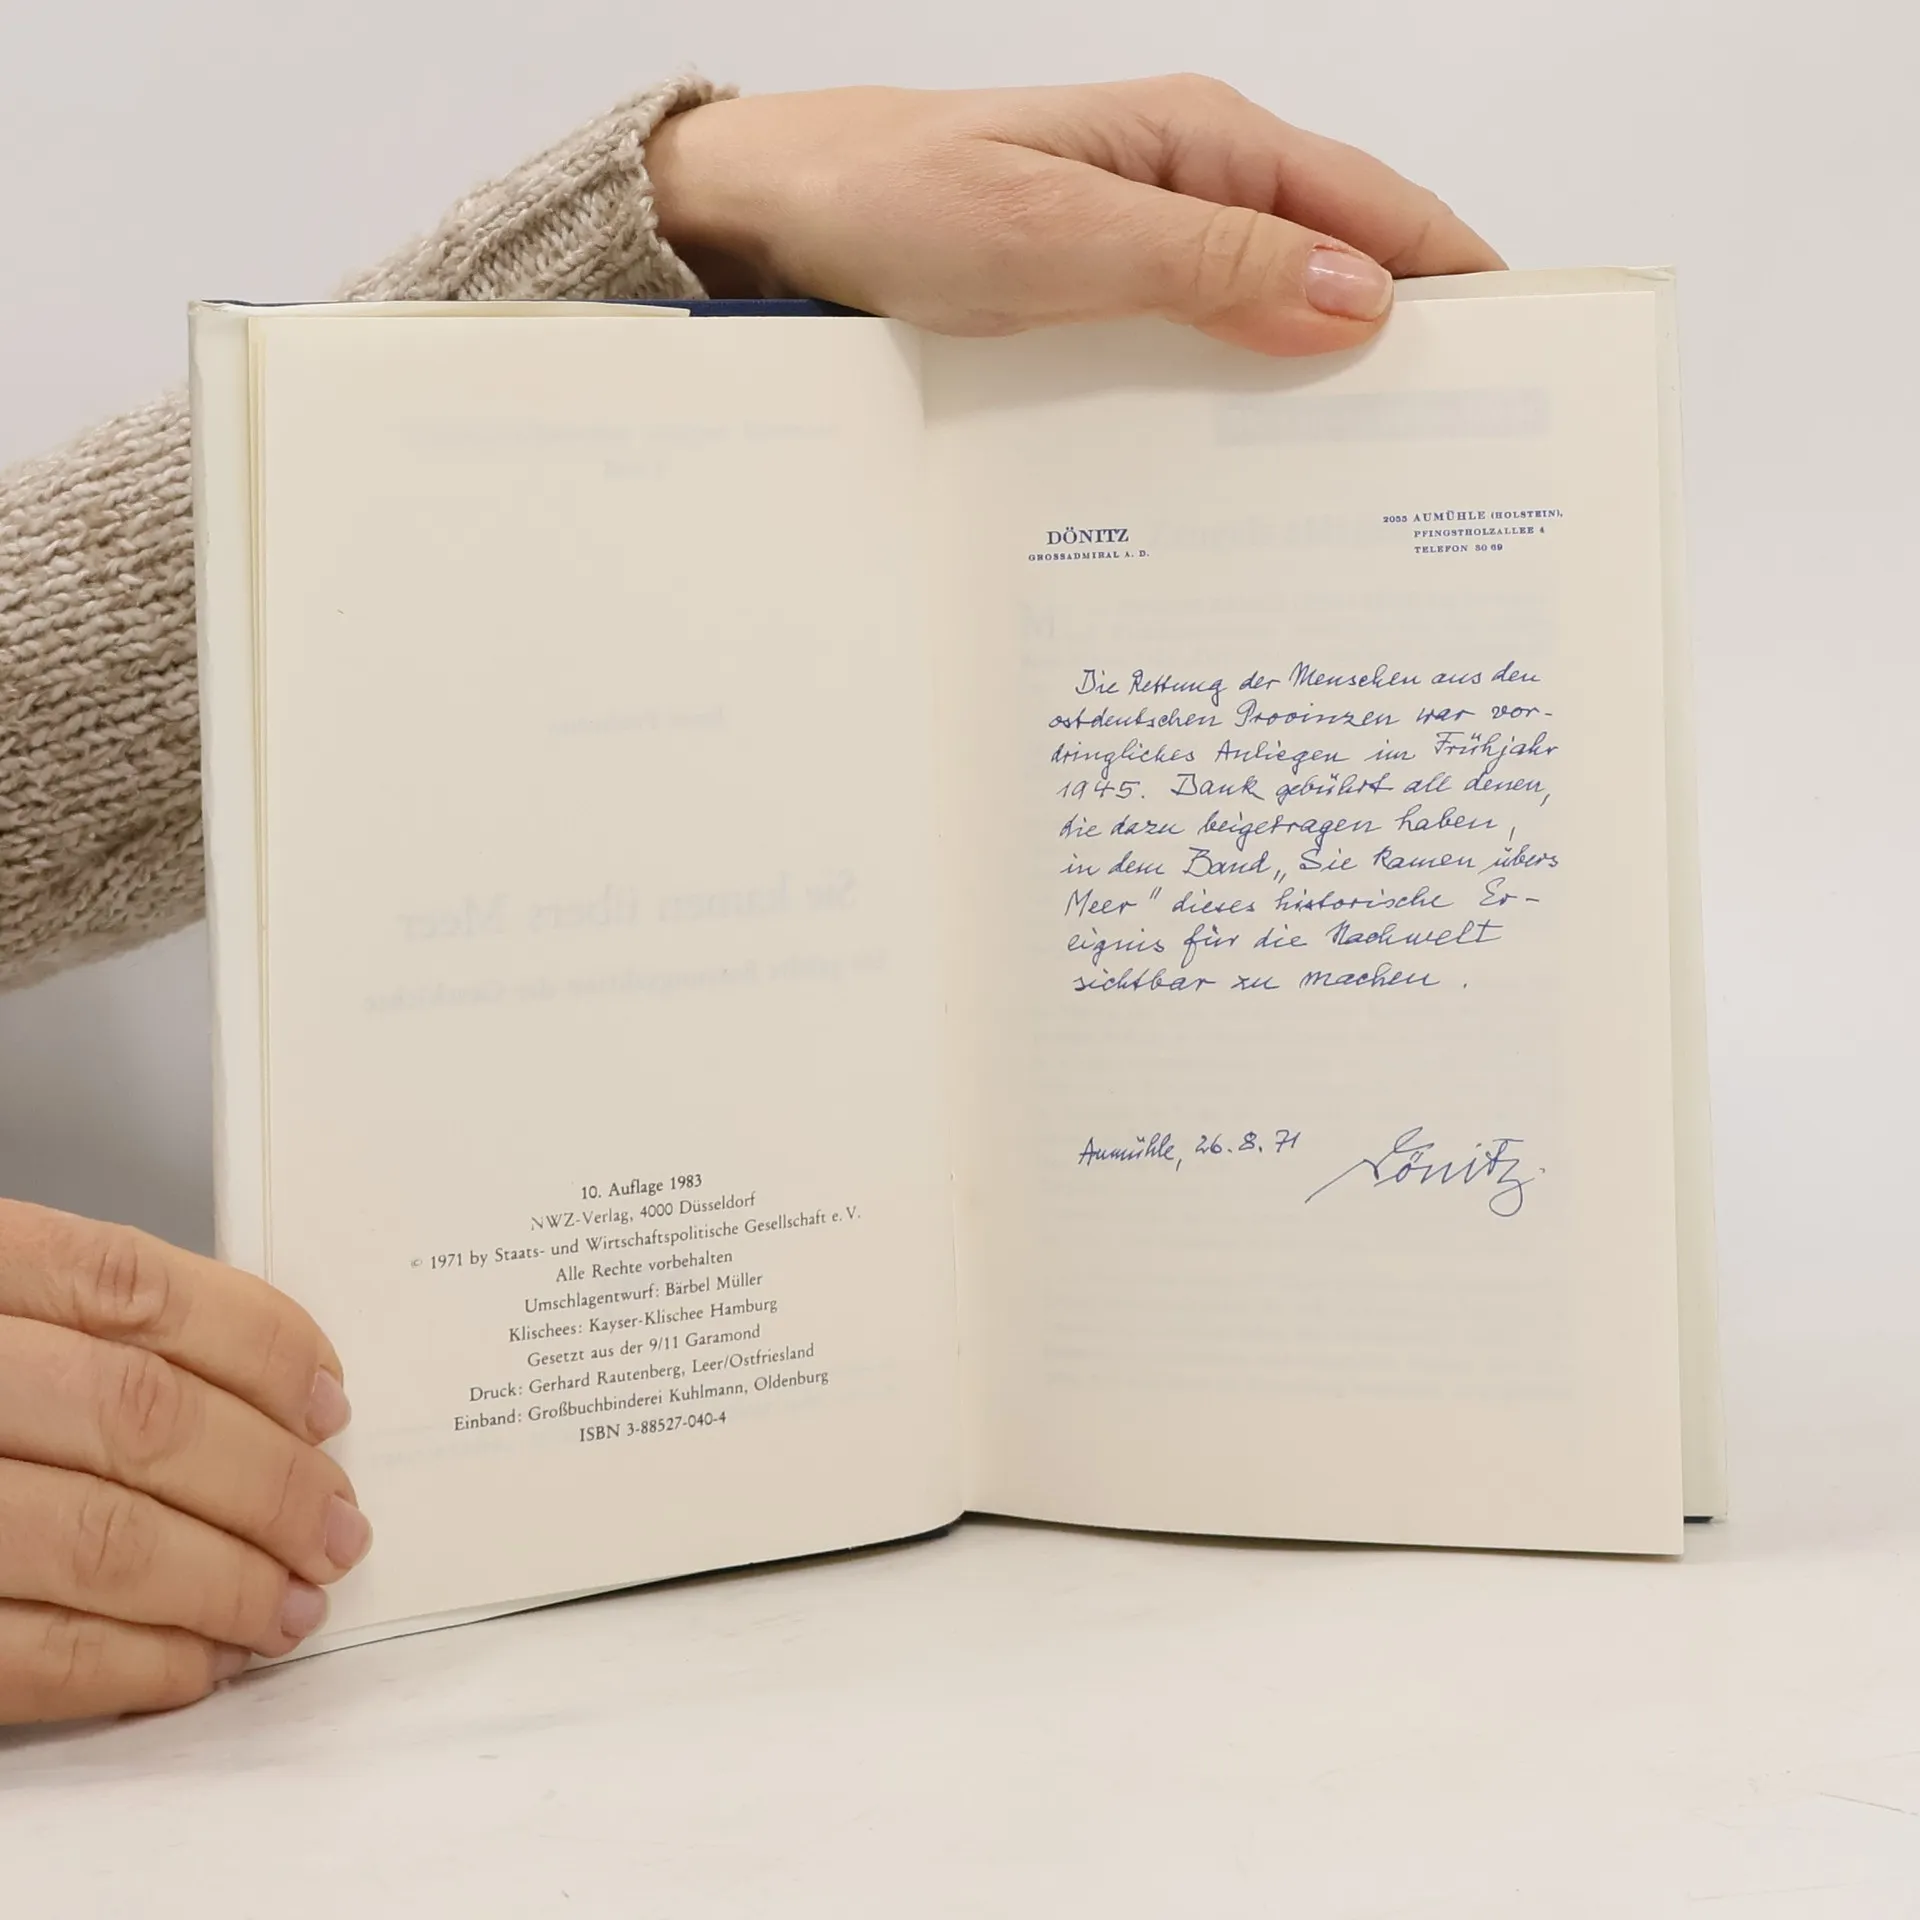 10. Auflage 1983
NWZ-Verlag, 4000 Düsseldorf
© 1971 by Staats- und Wirtschaftspolitische Gesellschaft e. V.
Alle Rechte vorbehalten
Umschlagentwurf: Bärbel Müller
Klischees: Kayser-Klischee Hamburg
Gesetzt aus der 9/11 Garamond
Druck: Gerhard Rautenberg, Leer/Ostfriesland
Einband: Großbuchbinderei Kuhlmann, Oldenburg
ISBN 3-88527-040-4
DÖNITZ
GROSSADMIRAL A. D.
2055 AUMÜHLE (HOLSTEIN),
PFINGSTHOLZALLEE 4
TELEFON 30 69
Die Rettung der Menschen aus den
ostdeutschen Provinzen war vor-
dringliches Anliegen im Frühjahr
1945. Dank gebührt all denen,
die dazu beigetragen haben,
in dem Band „Sie kamen übers
Meer" dieses historische Er-
eignis für die Nachwelt
sichtbar zu machen.
Aumühle, 26.8.71
Dönitz.